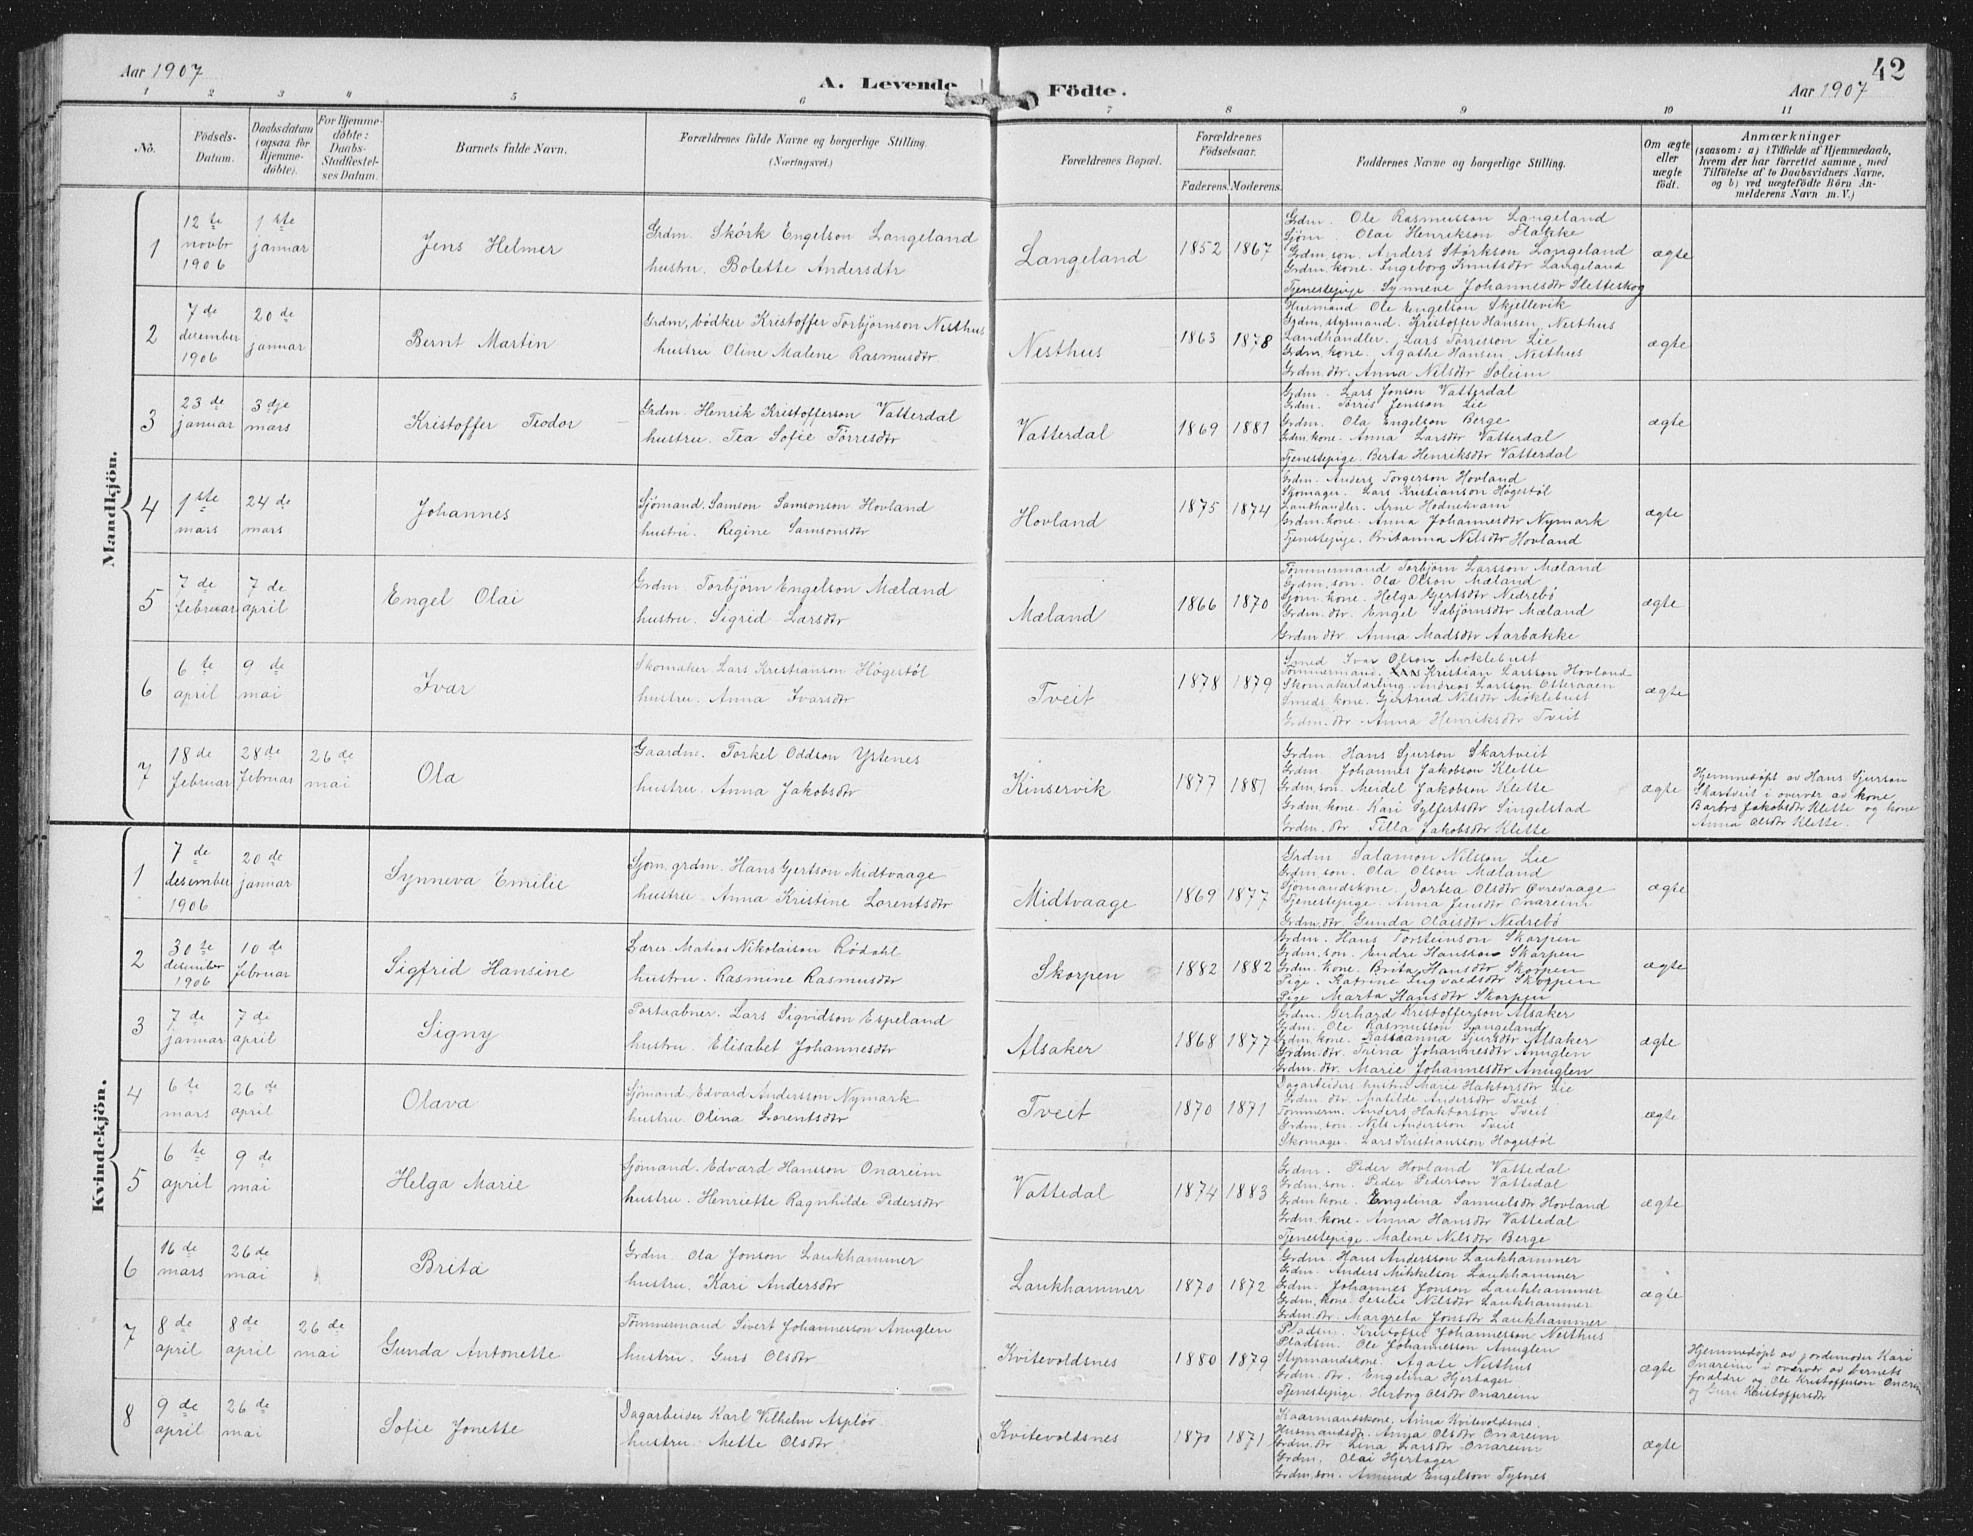 Aar 1907
A. Levende
Födte.
Aar 1907
42
1 2 3 4 5 6 7 8 9 10 11
No.
Födsels-
Datum.
Daabsdatum
(ogsaa for
Hjemme-
döbte).
For Hjemme-
döbte:
Daabs-
Stadfæstel-
ses Datum.
Barnets fulde Navn.
Forældrenes fulde Navne og borgerlige Stilling.
(Næringsvei.)
Forældrenes Bopæl.
Forældrenes
Födselsaar.
Faderens. Moderens.
Faddernes Navne og borgerlige Stilling.
Om ægte
eller
uægte
födt.
Anmærkninger
(saasom: a) i Tilfælde af Hjemmedaab,
hvem der har forrettet samme, med
Tilföielse af to Daabsvidners Navne.
og b) ved uægtefödte Börn An-
melderens Navn m. V.)
Mandkjön.
1
12te
novbr
1906
1ste
januar
Jens Helmer
Grdm. Skörk Engelson Langeland
hustru. Bolette Andersdtr
Langeland
1852 1867
Grdm. Ole Rasmusson Langeland
Sjöm Olai Henrikson Flakke
Grdm.son. Anders Störkson Langeland
Grdm.kone. Ingeborg Knutsdtr Langeland
Tjenestepige. Synneve Johannesdtr Sletteskog
ægte
2
7de
desember
1906
20de
januar
Bernt Martin
Grdm, bödker Kristoffer Torbjörnson Nesthus
hustru Oline Malene Rasmusdtr.
Nesthus
1863 1878
Husmand Ole Engelson Skjellevik
Grdm, styrmand. Kristoffer Hansen, Nesthus
Landhandler. Lars Törresson Lie
Grdm.kone. Agathe Hansen, Nesthus
Grdm.dtr. Anna Nilsdtr Soleim
ægte
3
23de
januar
3dje
mars
Kristoffer Teodor
Grdm. Henrik Kristofferson Vatterdal
hustru. Tea Sofie Törresdtr
Vatterdal
1869 1881
Grdm. Lars Jonson Vatterdal
Grdm. Törris Jensson Lie
Grdm. Ola Engelson Berge
Grdm.kone. Anna Larsdtr Vatterdal
Tjenestepige. Berta Henriksdtr Vatterdal
ægte
4
1ste
mars
24de
mars
Johannes
Sjömand. Samson Samsonson Hovland
hustru. Regine Samsonsdtr
Hovland
1875 1874
Grdm. Anders Torgerson Hovland
Skomager. Lars Kristianson Högestöl
Landhandler. Arne Hodnekvam
Grdm.kone. Anna Johannesdtr Nymark
Tjenestepige. Britanna Nilsdtr Hovland
ægte
5
7de
februar
7de
april
Engel Olai
Grdm. Torbjörn Engelson Mæland
hustru. Sigrid Larsdtr
Mæland
1866 1870
Tömmermand Torbjörn Larsson Mæland
Grdm.son. Ola Olson Mæland
Sjöm.kone. Helga Gjertsdtr Nedrebö
Grdm.dtr. Engel Sæbjörnsdtr Mæland
Grdm.dtr. Anna Madsdtr Aarbakke
ægte
6
6te
april
9de
mai
Ivar
Skomaker Lars Kristianson Högestöl
hustru. Anna Ivarsdtr
Tveit
1878 1879
Smed Ivar Olson Möklebust
Tömmermand. Kristian Larsson Hovland
Skomakerlærling. Andreas Larsson Otteraaen
Smeds kone. Gjertrud Nilsdtr Möklebust
Grdm.dtr. Anna Henriksdtr Tveit
ægte
7
18de
februar
28de
februar
26de
mai
Ola
Gaardm. Torkel Oddson Ystenes
hustru. Anna Jakobsdtr
Kinservik
1877 1881
Grdm. Hans Sjurson Skartveit
Grdm. Johannes Jakobson Klette
Grdm.son. Meidel Jakobson Klette
Grdm.kone. Kari Sylfertsdtr Singelstad
Grdm.dtr. Tilla Jakobsdtr Klette
ægte
Hjemmedöpt av Hans Sjurson
Skartveit i overvær av kone
Barbro Jakobsdtr Klette og kone
Anna Olsdtr Klette.
Kvindekjön.
1
7de
desember
1906
20de
januar
Synneva Emilie
Sjöm, grdm. Hans Gjertson Midtvaage
hustru. Anna Kristine Lorentsdtr
Midtvaage
1869 1877
Grdm. Salamon Nilsson Lie
Grdm.son. Ola Olson Mæland
Sjömandskone. Dortea Olsdtr Övrevaage
Tjenestepige. Anna Jensdtr Onareim
Grdm.dtr. Gunda Olaisdtr Nedrebö
ægte
2
30te
desember
1906
10de
februar
Sigfrid Hansine
Lærer. Matias Nikolaison Rödahl
hustru. Rasmine Rasmusdtr
Skorpen
1882 1882
Grdm. Hans Torsteinson Skorpen
Grdm.son. Endre Hansson Skorpen
Grdm.kone. Brita Hansdtr Skorpen
Pige. Katrine Ingvaldsdtr Skorpen
Pige Marta Hansdtr Skorpen
ægte
3
7de
januar
7de
april
Signy
Postaabner. Lars Sigvidson Espeland
hustru. Elisabet Johannesdtr
Alsaker
1868 1877
Grdm. Gerhard Kristofferson Alsaker
Grdm. Ole Rasmusson Langeland
Grdm.kone. Sjursdtr Alsaker
Grdm.dtr. Trina Johannesdtr Anuglen
Grdm.dtr. Marie Johannesdtr Anuglen
ægte
4
6te
mars
26de
april
Olava
Sjömand Edvard Andersson Nymark
hustru. Olina Lorentsdtr
Tveit
1870 1871
Dagarbeiders hustru Marie Haktorsdtr Lie
Grdm.dtr. Matilde Andersdtr Tveit
Tömmerm. Anders Haktorson Tveit
Grdm.son. Nils Andersson Tveit
Skomager. Lars Kristiansson Högestöl
ægte
5
6te
april
9de
mai
Helga Marie
Sjömand. Edvard Hansson Onareim
hustru. Henriette Ragnhilde Pedersdtr
Vattedal
1874 1883
Grdm. Peder Hovland Vattedal
Grdm.son. Peder Pederson Vattedal
Grdm.kone. Engelina Samuelsdtr Hovland
Grdm.kone. Anna Hansdtr Vattedal
Tjenestepige. Malene Nilsdtr Berge
ægte
6
16de
mars
26de
mai
Brita
Grdm. Ola Jonson Laukhammer
hustru. Kari Andersdtr
Laukhammer
1870 1872
Grdm. Hans Andersson Laukhammer
Grdm. Anders Mikkelson Laukhammer
Grdm. Johannes Jonson Laukhammer
Grdm.kone. Sesilie Nilsdtr Laukhammer
Grdm.dtr. Margreta Jonsdtr Laukhammer
ægte
7
8de
april
8de
april
26de
mai
Gunda Antonette
Tömmermand Sivert Johannesson Anuglen
hustru. Guro Olsdtr
Kvitevoldsnes
1880 1879
Pladsm. Kristoffer Johannesson Nesthus
Pladsm. Ole Johannesson Anuglen
Styrmandskone. Agate Nesthus
Grdm.dtr. Engelina Hjertager
Tjenestepige. Herborg Olsdtr Onareim
ægte
Hjemmedöpt av jordemoder Kari
Onareim i overvær av barnets
foraldre og Ole Kristofferson Onareim
og Guri Kristoffersdtr
8
9de
april
26de
mai
Sofie Jonette
Dagarbeider Karl Vilhelm Asplöv
hustru. Mette Olsdtr
Kvitevoldsnes
1870 1871
Kaarmandskone. Anna Kvitevoldsnes.
Husmandsdtr. Anna Olsdtr Onareim
Grdm.dtr Lina Larsdtr Onareim
Grdm. Olai Hjertager
Grdm.son. Amund Engelson Tysnes
ægte